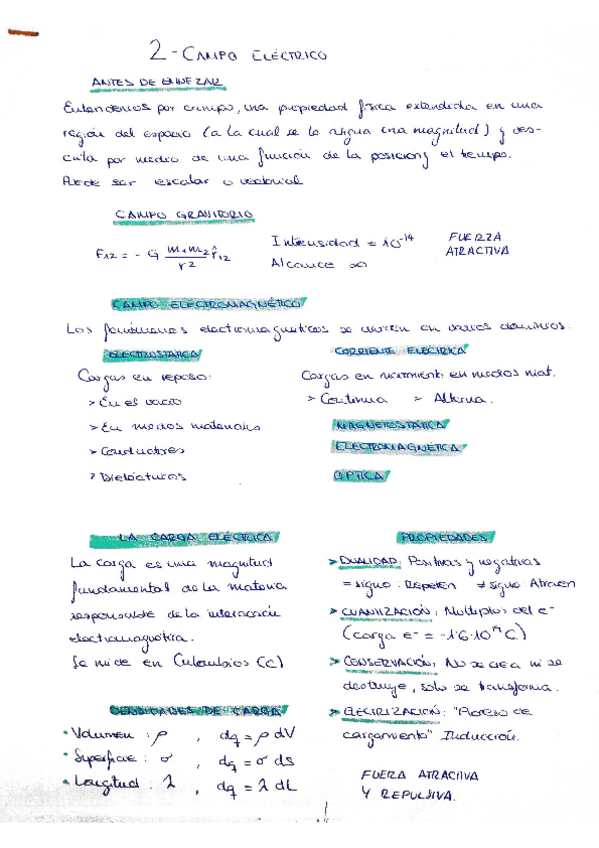 2-CAMPO ELÉCTRICO
ANTES DE EMPEZAR
Entendemos por campo, una propiedad física extendida en una
región del espacio (a la cual se le asigna una magnitud) y des-
crita por medio de una función de la posición y el tiempo.
Puede ser escalar o vectorial
CAMPO GRAVITORIO
F12 = - G m1m2 / r2 r̂12
Intensidad = 10^-14
Alcance ∞
FUERZA
ATRACTIVA
CAMPO ELECTROMAGNÉTICO
Los fenómenos electromagnéticos se ocurren en varios dominios.
ELECTROSTÁTICA
Cargas en reposo:
> En el vacío
> En medios materiales
> Conductores
> Dieléctricos
CORRIENTE ELÉCTRICA
Cargas en movimiento en medios mat.
> Continua > Alterna.
MAGNETOSTÁTICA
ELECTROMAGNÉTICA
ÓPTICA
LA CARGA ELÉCTRICA
La carga es una magnitud
fundamental de la materia
responsable de la interacción
electromagnética.
Se mide en Culombios (C)
DENSIDADES DE CARGA
• Volumen : ρ , dq = ρ dV
• Superficie : σ , dq = σ ds
• Longitud : λ , dq = λ dL
PROPIEDADES
> DUALIDAD: Positivas y negativas
= signo : Repelen ≠ signo : Atraen
> CUANTIZACIÓN : Multiplos del e-
(carga e- = -1'6·10^-19 C)
> CONSERVACIÓN: No se crea ni se
destruye, solo se transforma.
> ELECTRIZACIÓN: "Proceso de
cargamento" Inducción.
FUERZA ATRACTIVA
Y REPULSIVA.